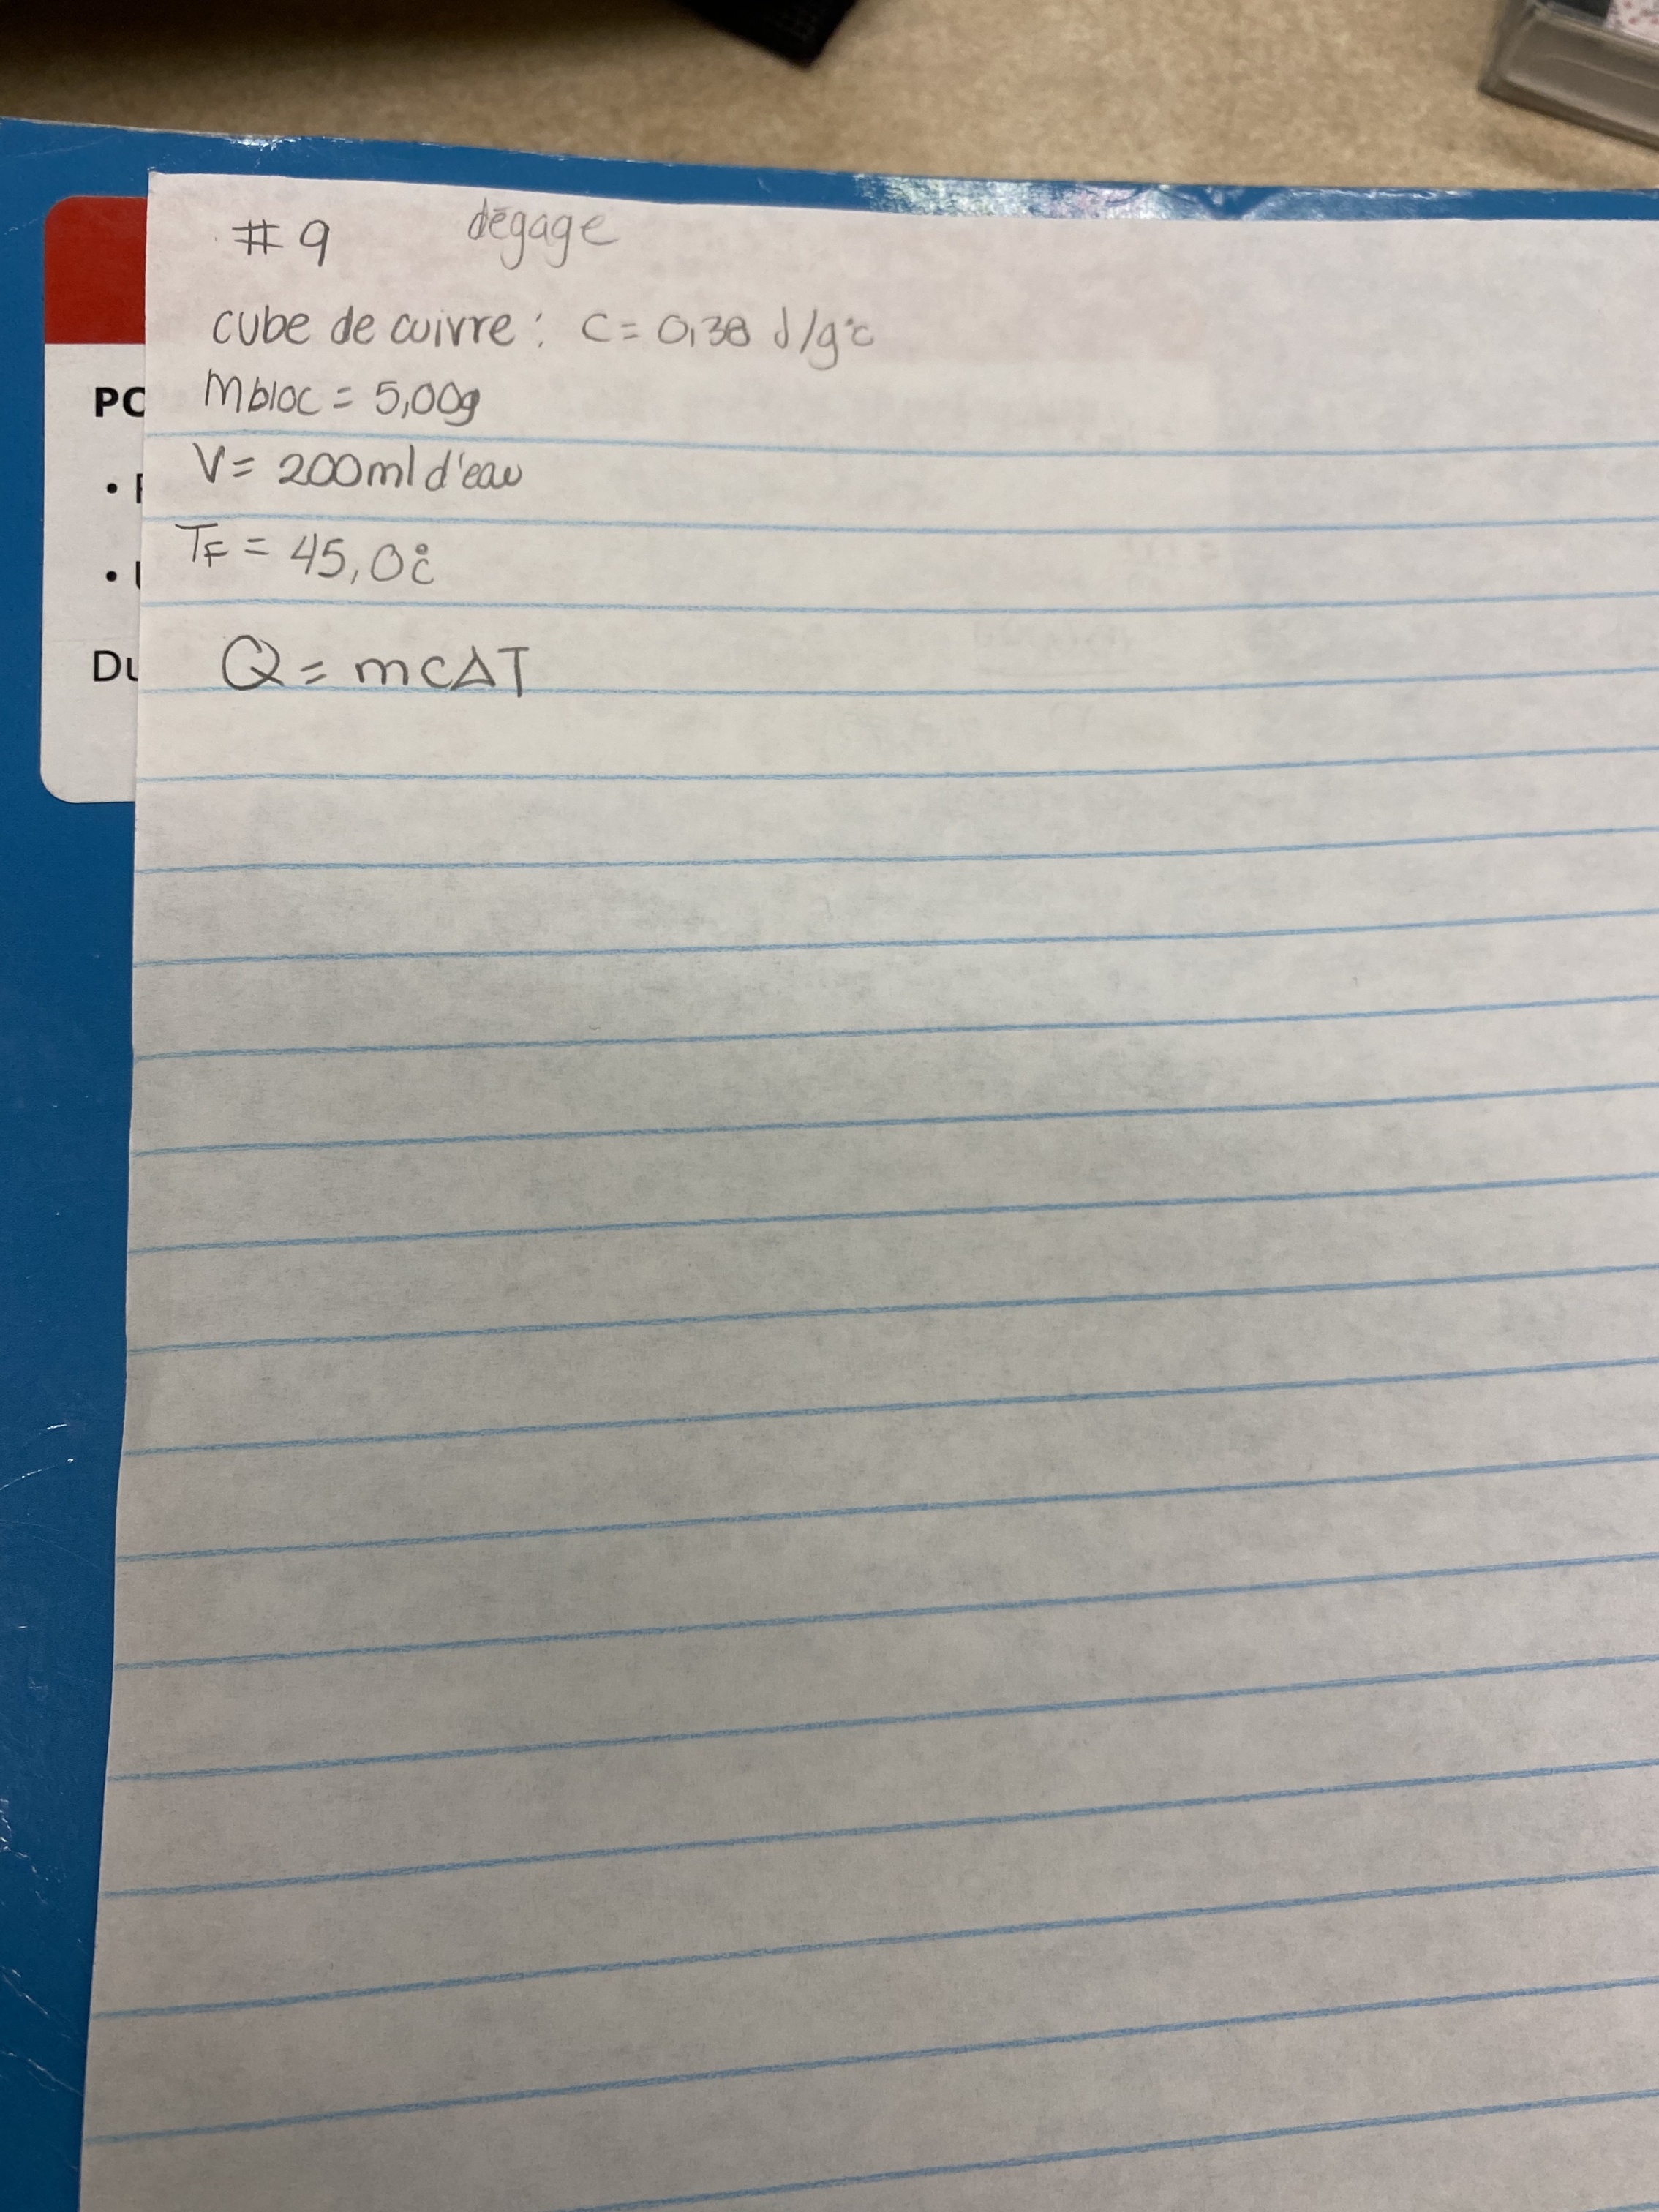 #9 dégage
cube de cuivre : C = 0,38 J/g°c
PC
mbloc = 5,00g
V = 200ml d'eau
TF = 45,0°c
Du
Q = mcΔT